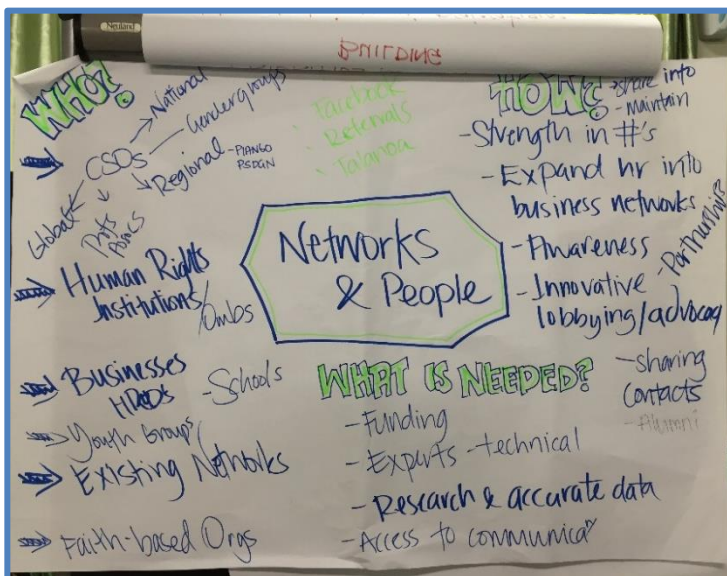 Neuland
BUILDING
WHO?
National
Gender groups
CSOs
Regional - PIANGO
PSDGN
Global
Human Rights
Institutions/
Ombs
Businesses
HRDs
- Schools
Youth Groups/
Existing Networks
Faith-based Orgs
Facebook
Referrals
Talanoa
Networks
& People
HOW?
- share info
- maintain
- Strength in #'s
- Expand hr into
business networks
- Awareness
- Partnerships
- Innovative
lobbying/advocacy
- sharing
contacts
- Alumni
WHAT IS NEEDED?
- Funding
- Experts - technical
- Research & accurate data
- Access to communica